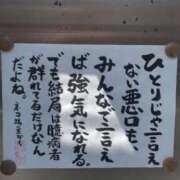 ひとりじゃ言え
ない悪口も、
みんなで言え
ば強気になれる。
でも結局は臆病者
が群れてるだけなん
だよね。